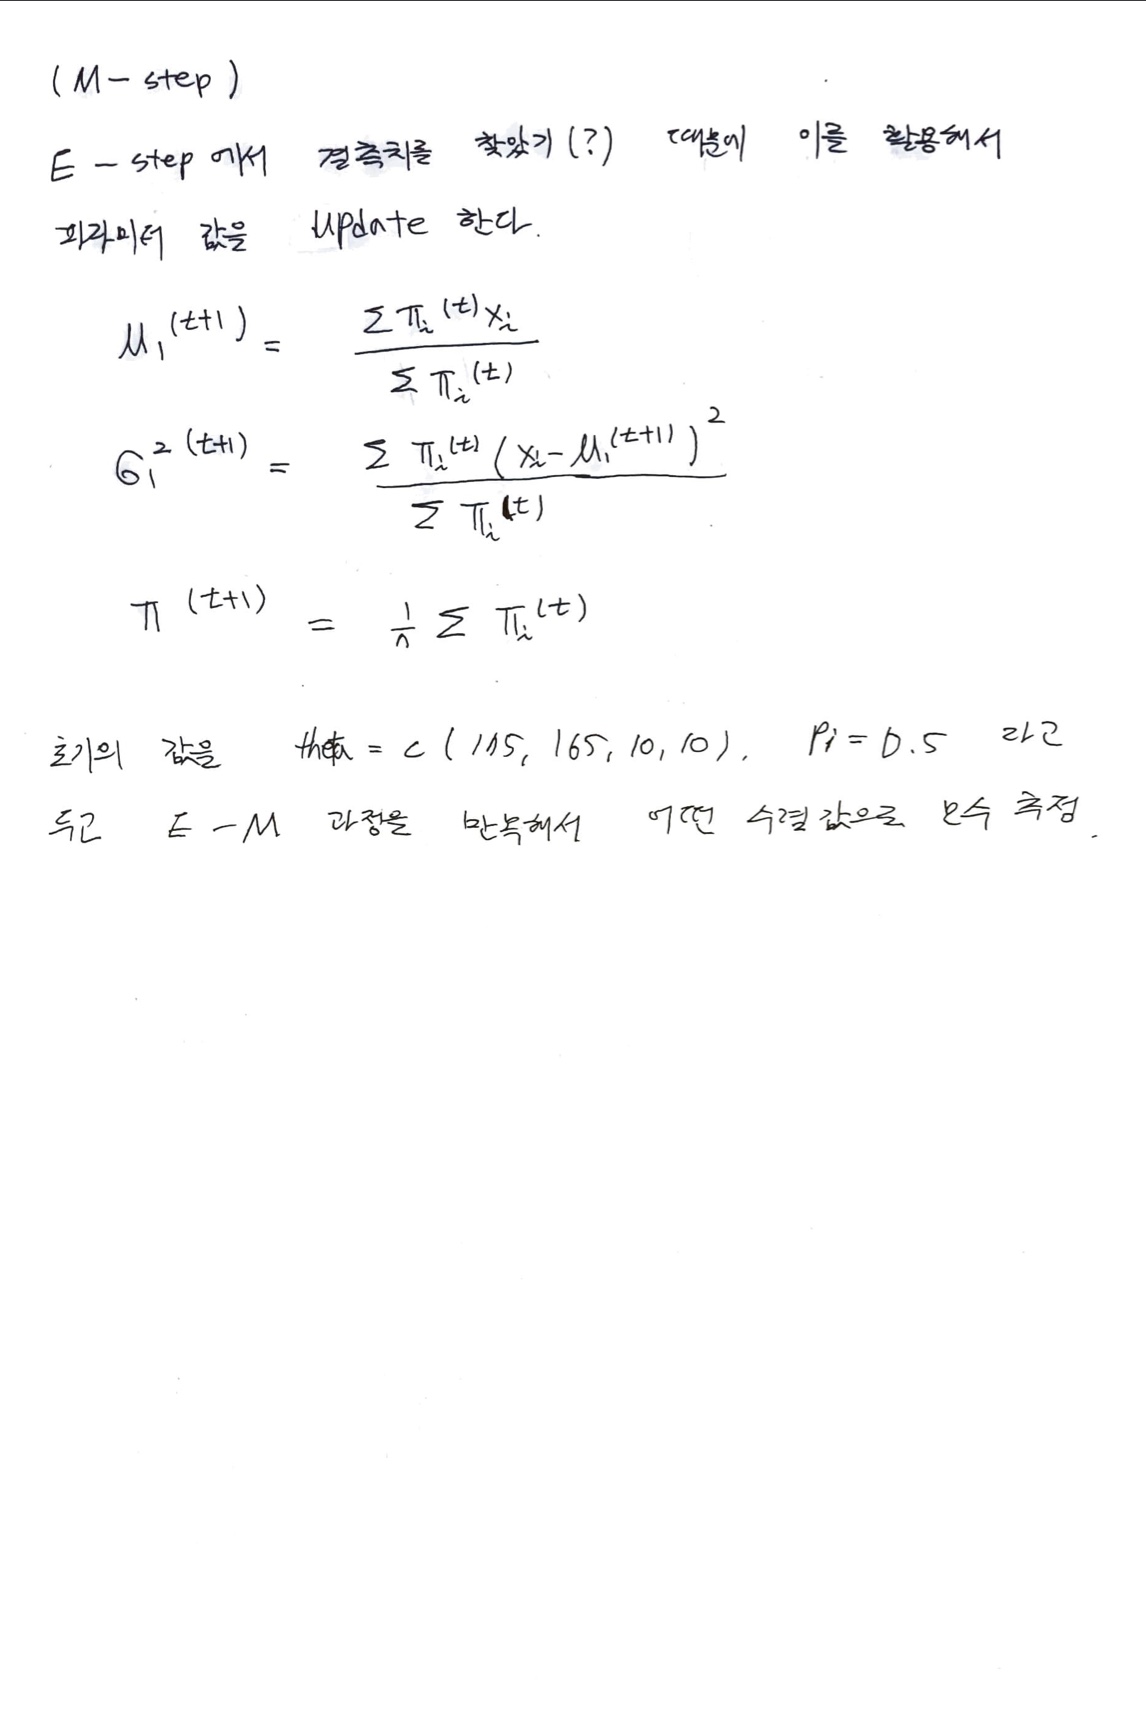 (M - step)
E - step 에서 결측치를 찾았기(?) 때문에 이를 활용해서
파라미터 값을 update 한다.
μ₁^(t+1) = Σ π_i^(t) x_i / Σ π_i^(t)
σ₁²^(t+1) = Σ π_i^(t) (x_i - μ₁^(t+1))² / Σ π_i^(t)
π^(t+1) = 1/n Σ π_i^(t)
초기의 값을 theta = c (185, 165, 10, 10), Pi = 0.5 라고
두고 E - M 과정을 반복해서 어떤 수렴값으로 모수 추정.